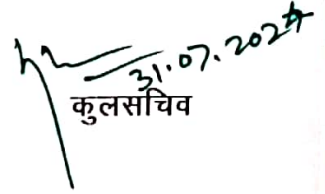 31.07.2024
कुलसचिव